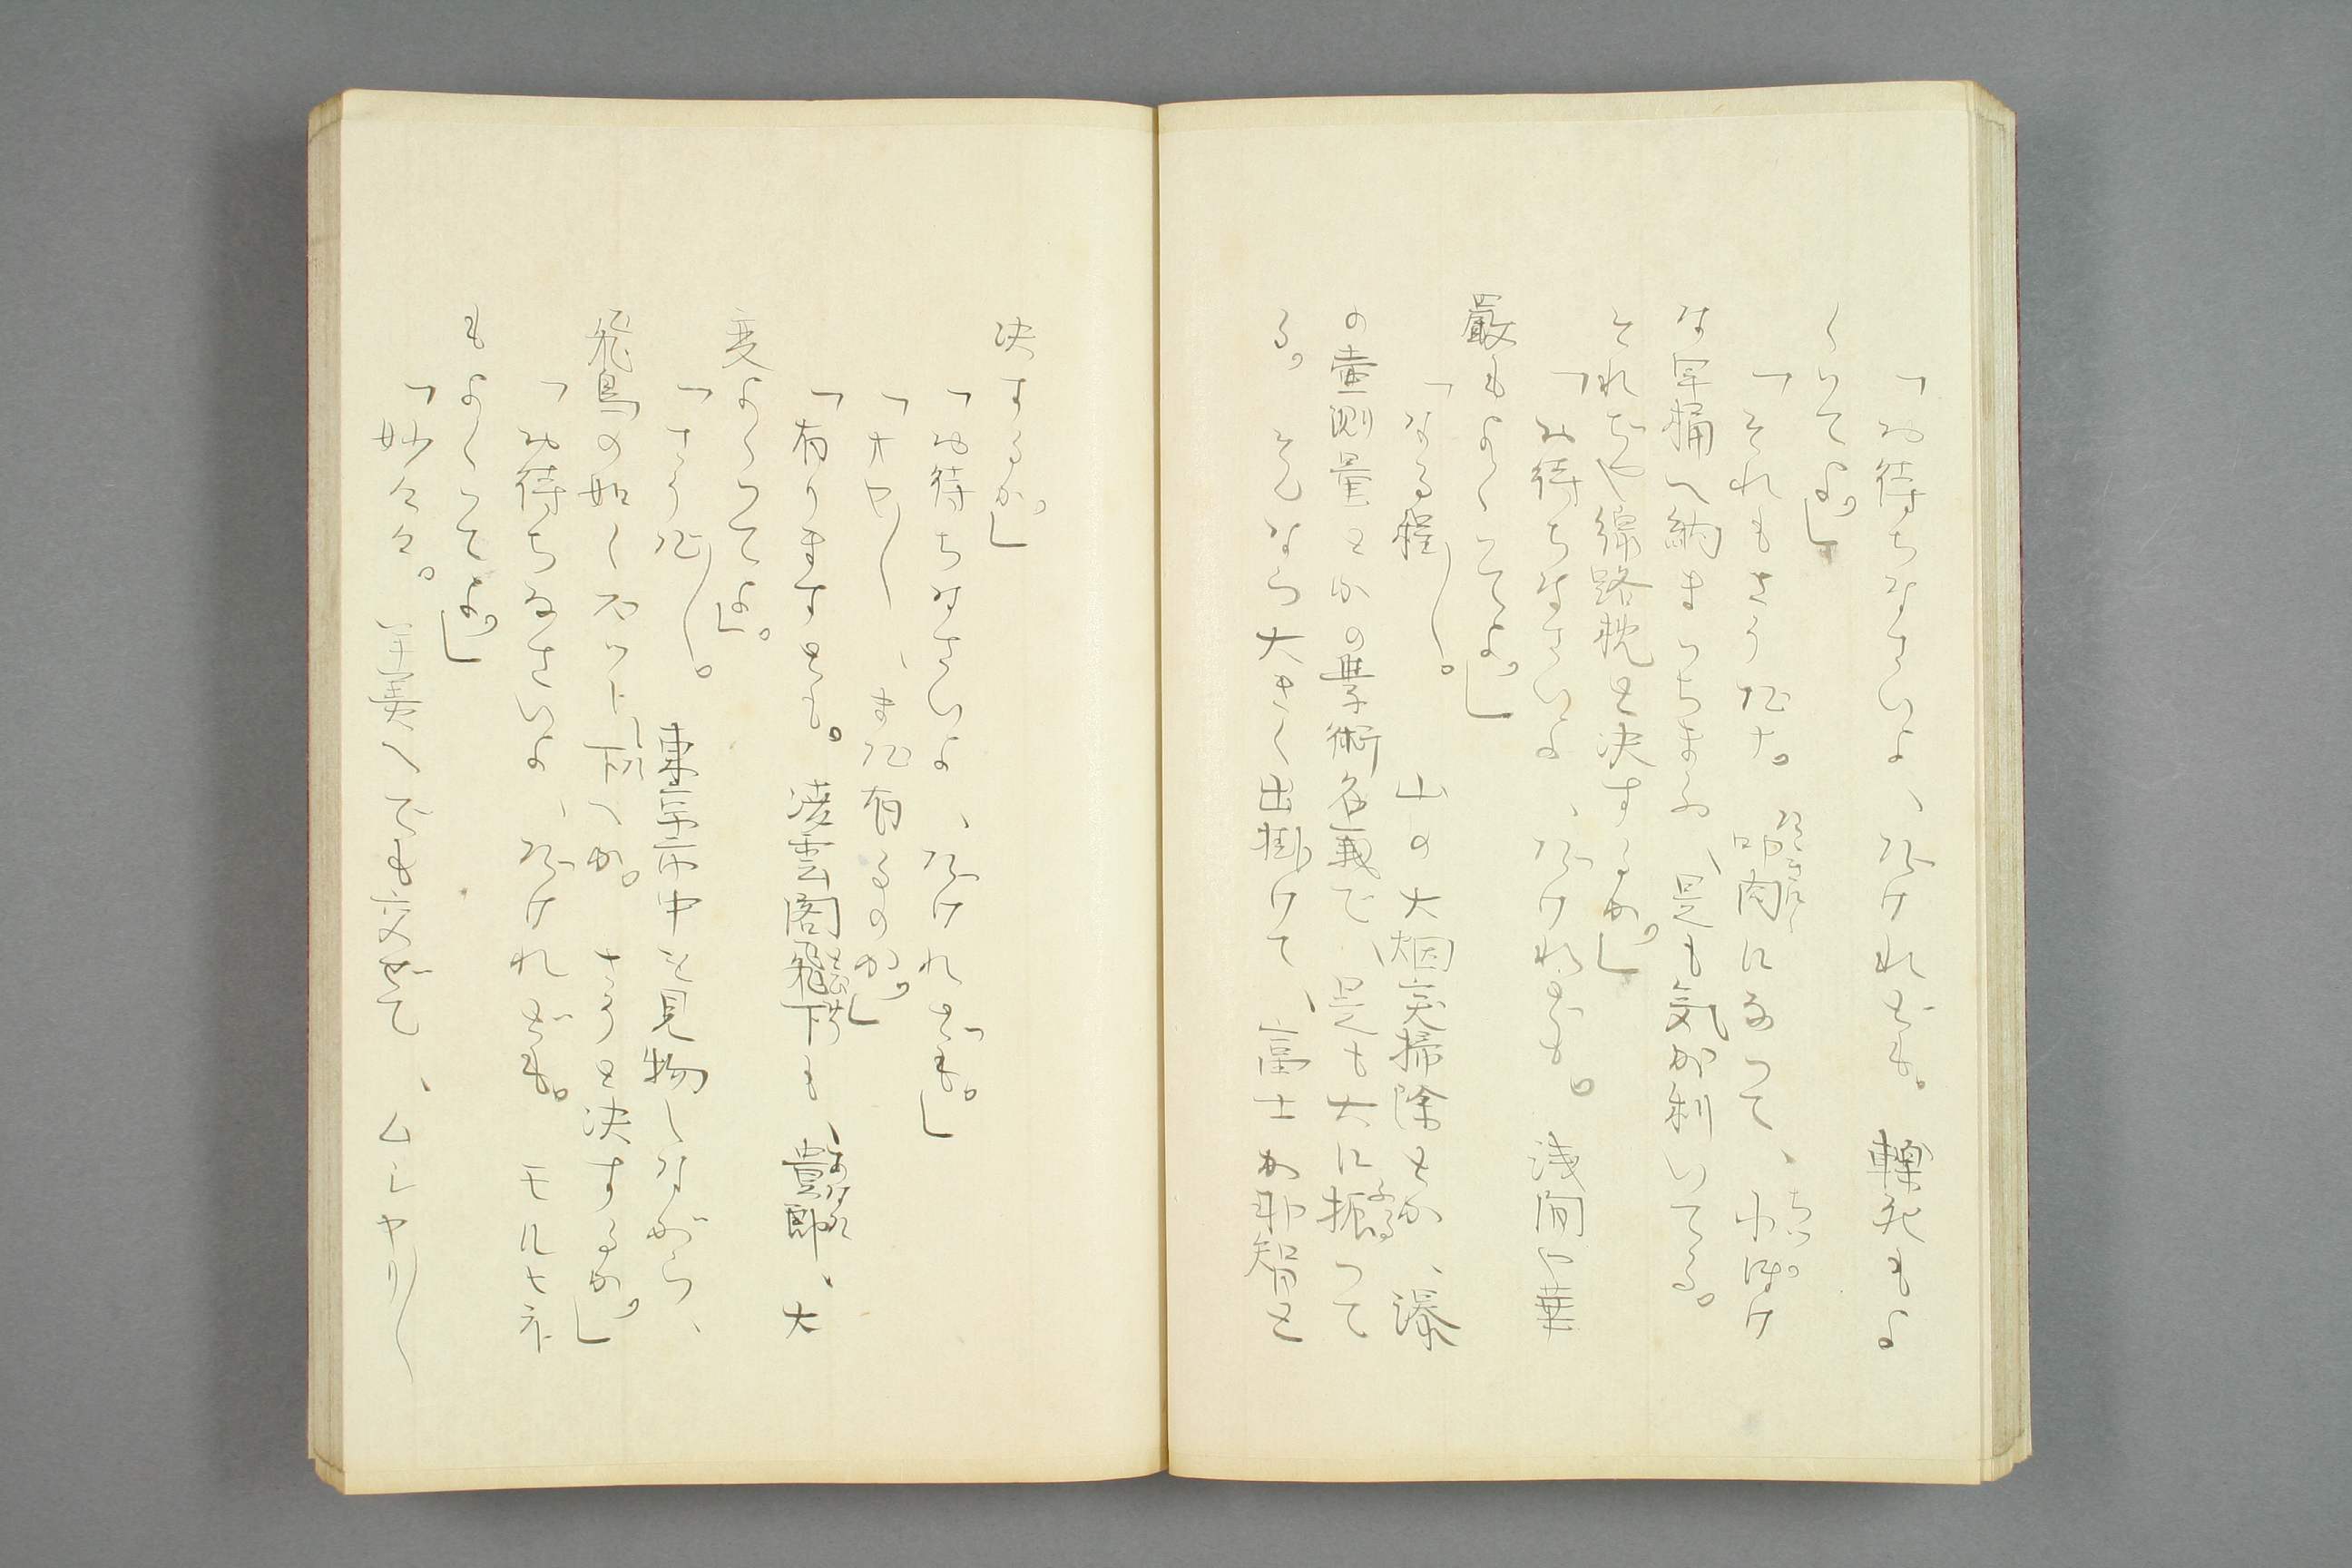 「お待ちなさいよ、だけれども。轢死もよ
くつてよ。」
「それもさうだナ。叩肉になつて、小ぽけ
な早桶へ納まつちまふ、是も気が利いてる。
それぢや線路枕と決するか。」
「お待ちなさいよ、だけれども。浅間や華
厳もよくつてよ。」
「なる程――。山の大烟突掃除とか、瀑
の壷測量とかの学術名義で、是も大に振つて
る。そんなら大きく出掛けて、富士か那智と
決するか。」
「お待ちなさいよ、だけれども。」
「オヤ――、まだ有るのか。」
「有りますとも。凌雲閣飛下も、貴郎、大
変よくつてよ。」
「さうだ――。東京市中を見物しながら、
飛鳥の如くスワト下へか。さうと決するか。」
「お待ちなさいよ、だけれども。モルヒネ
もよくつてよ。」
「妙々々。